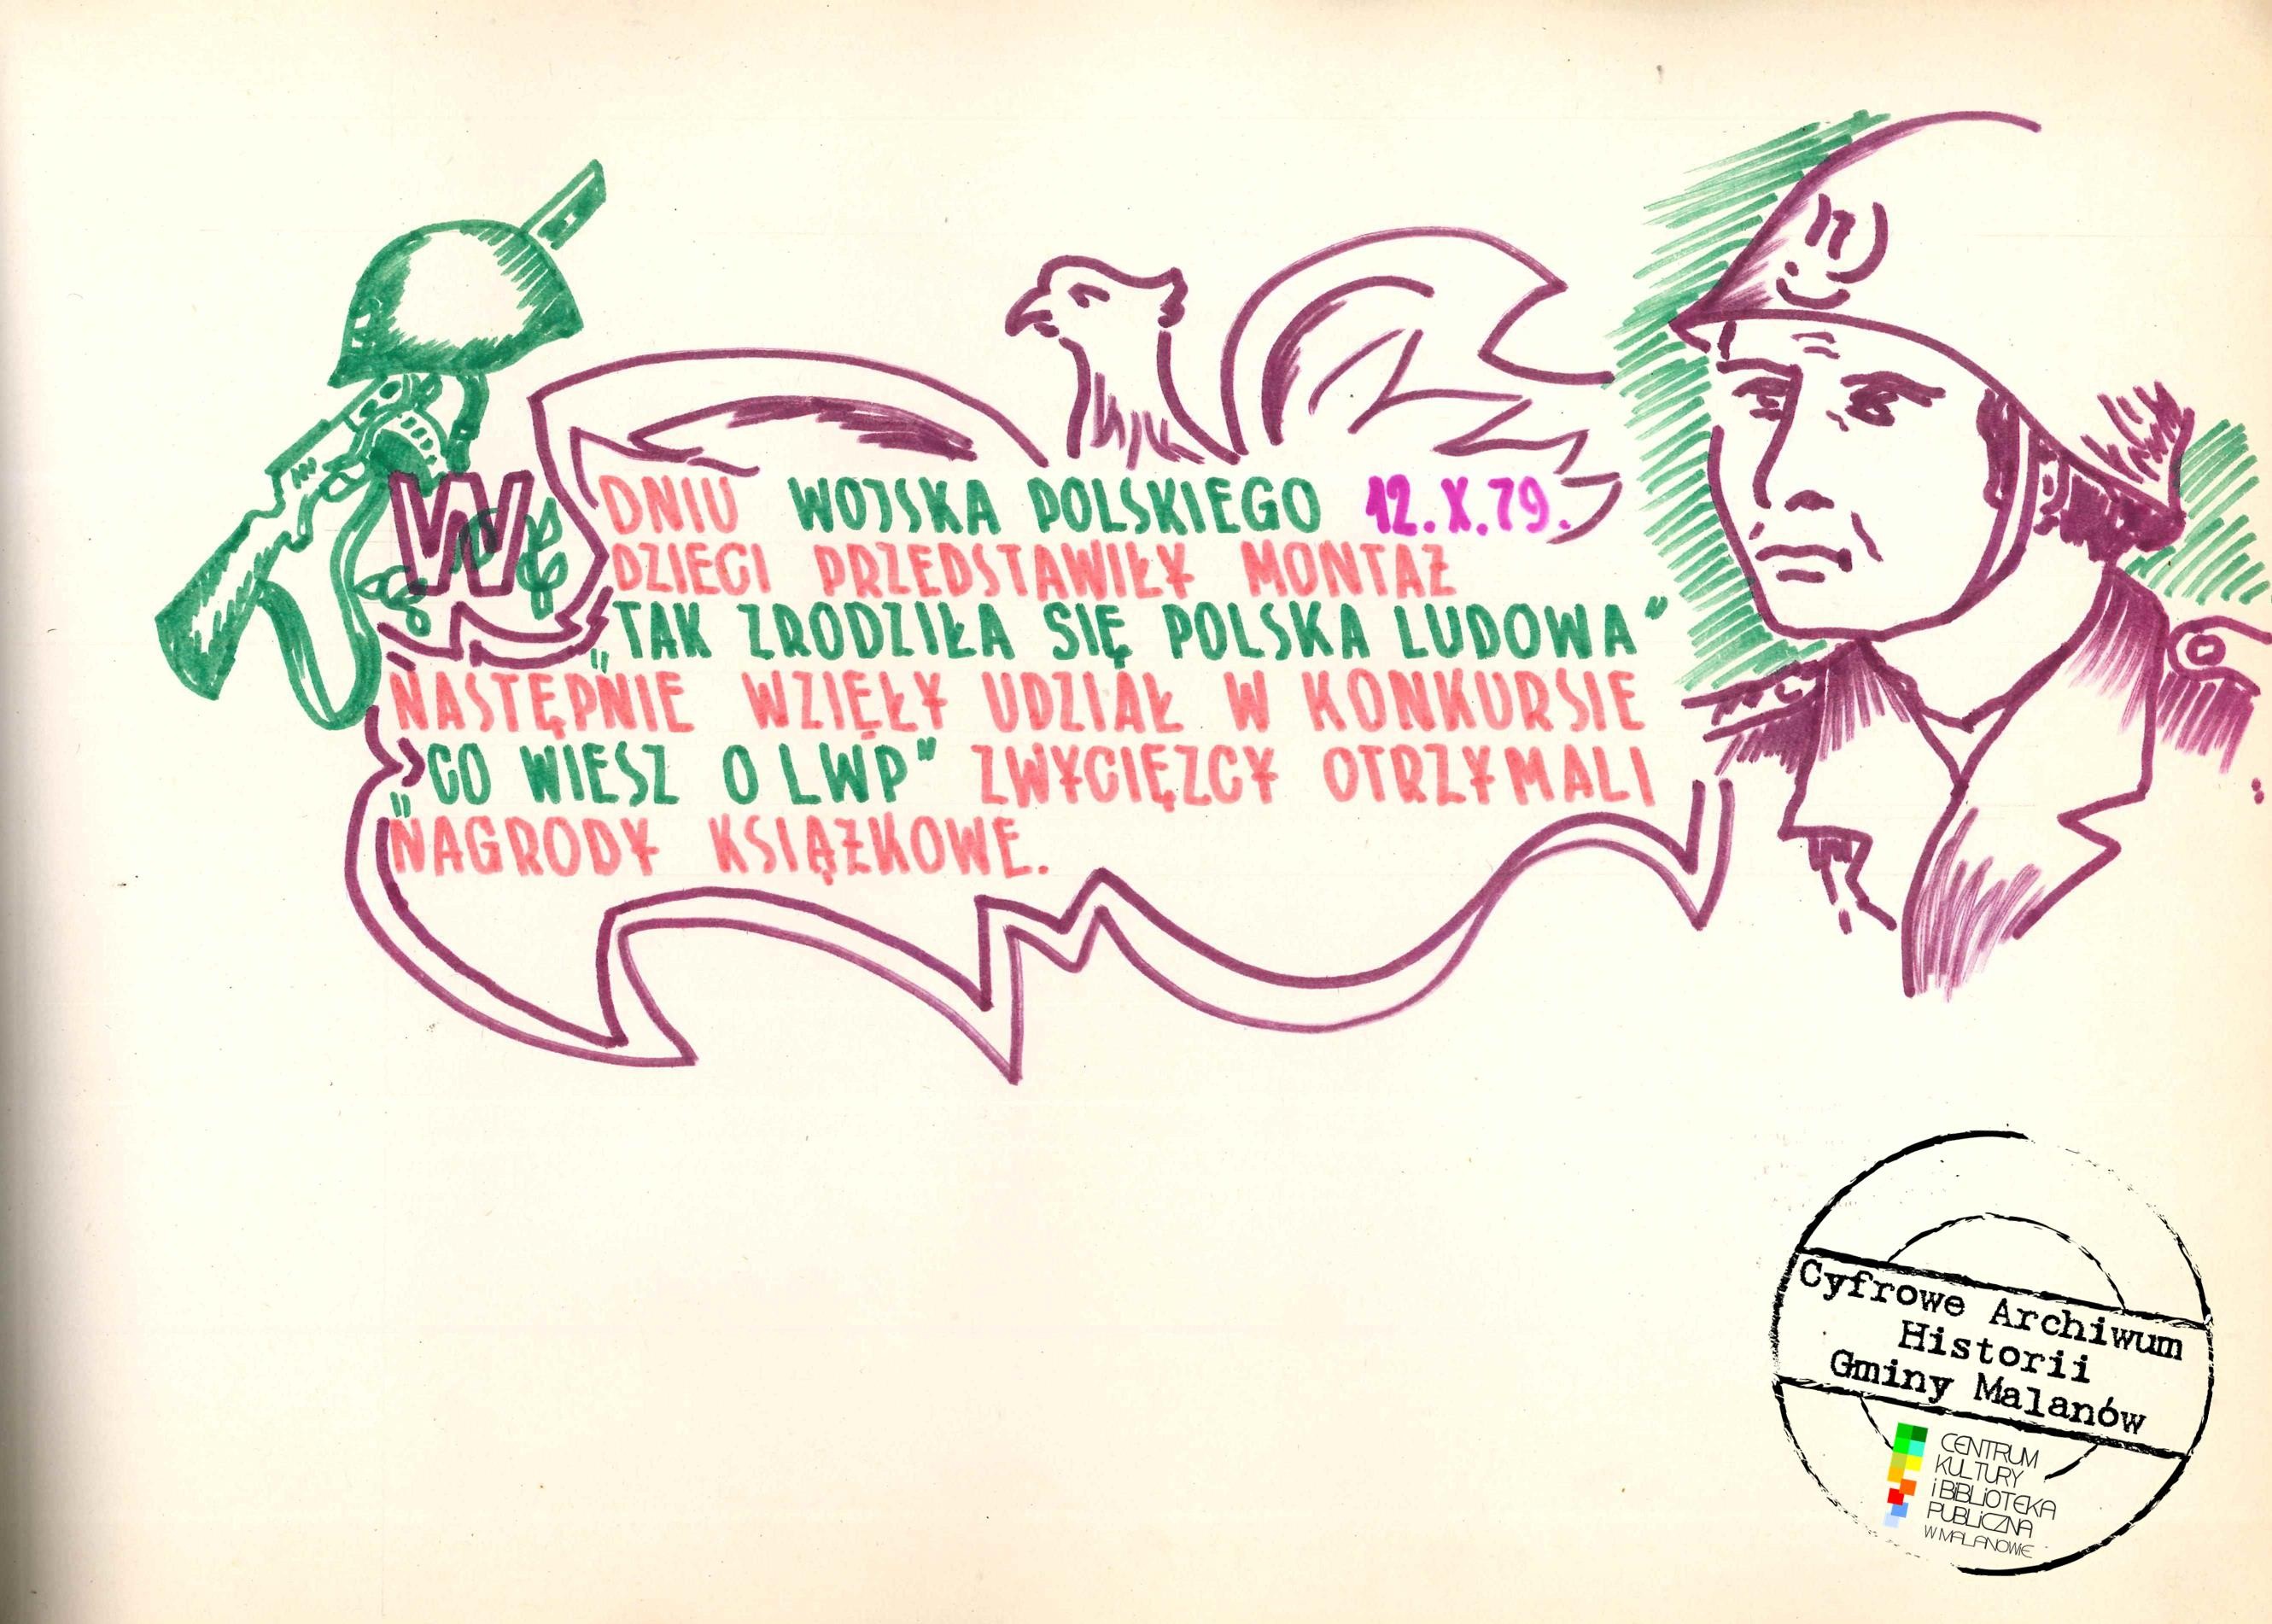 W DNIU WOJSKA POLSKIEGO 12.X.79.
DZIECI PRZEDSTAWIŁY MONTAŻ
„TAK ZRODZIŁA SIĘ POLSKA LUDOWA”
NASTĘPNIE WZIĘŁY UDZIAŁ W KONKURSIE
„CO WIESZ O LWP” ZWYCIĘZCY OTRZYMALI
NAGRODY KSIĄŻKOWE.
Cyfrowe Archiwum
Historii
Gminy Malanów
CENTRUM
KULTURY
i BiBLiOTEKA
PUBLiCZNA
W MALANOWIE